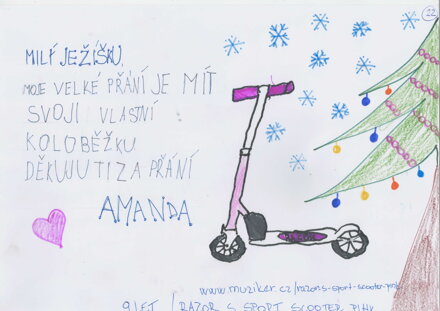 22
MILÍ JEŽÍŠKU,
MOJE VELKÉ PŘÁNÍ JE MÍT
SVOJI VLASTNÍ
KOLOBĚŽKU
DĚKUJU TI ZA PŘÁNÍ
AMANDA
www.muziker.cz/razor-s-sport-scooter-pink
9 LET / RAZOR S SPORT SCOOTER PINK